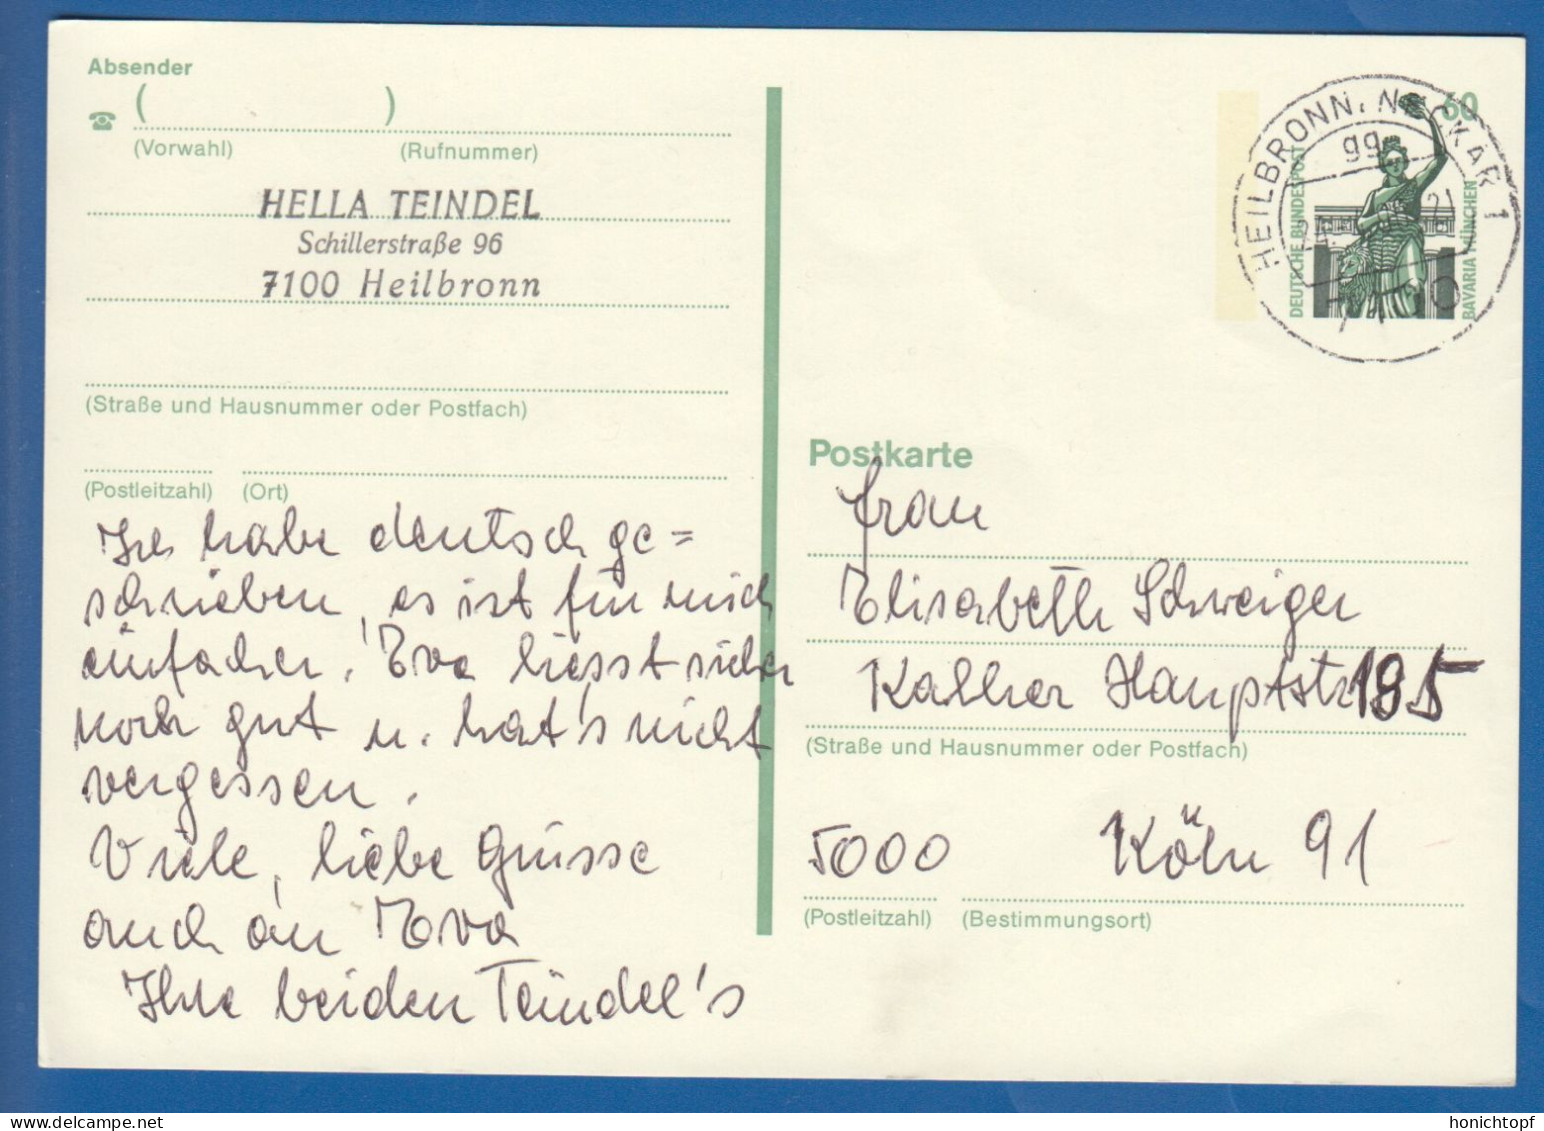 Absender
( )
(Vorwahl) (Rufnummer)
HELLA TEINDEL
Schillerstraße 96
7100 Heilbronn
(Straße und Hausnummer oder Postfach)
(Postleitzahl) (Ort)
Ich habe deutsch ge=
schrieben, es ist für mich
einfacher. Eva liesst sicher
noch gut u. hat's nicht
vergessen.
Viele, liebe Grüsse
auch an Eva
Ihre beiden Teindel's
60
DEUTSCHE BUNDESPOST
BAVARIA MÜNCHEN
HEILBRONN, NECKAR 1
gg
7100
Postkarte
Frau
Elisabeth Schweiger
Kalker Hauptstr 195
(Straße und Hausnummer oder Postfach)
5000 Köln 91
(Postleitzahl) (Bestimmungsort)
honichtopf